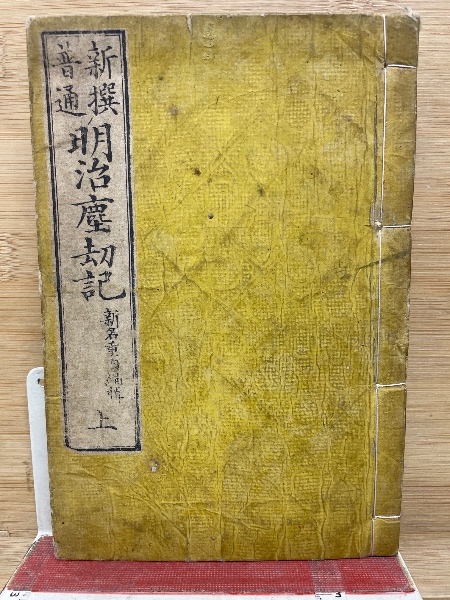 新撰
普通
明治塵劫記
新名重内編輯
上